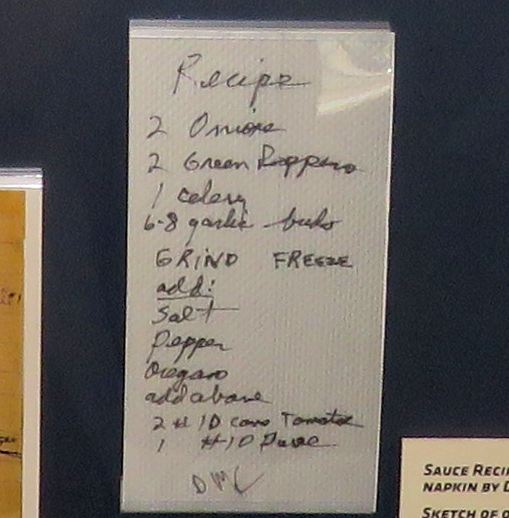 Recipe
2 Onions
2 Green Peppers
1 celery
6-8 garlic buds
GRIND FREEZE
add:
Salt
Pepper
Oregano
add above
2 #10 cans Tomatoe
1 #10 Puree
SAUCE RECI
NAPKIN BY D
SKETCH OF O